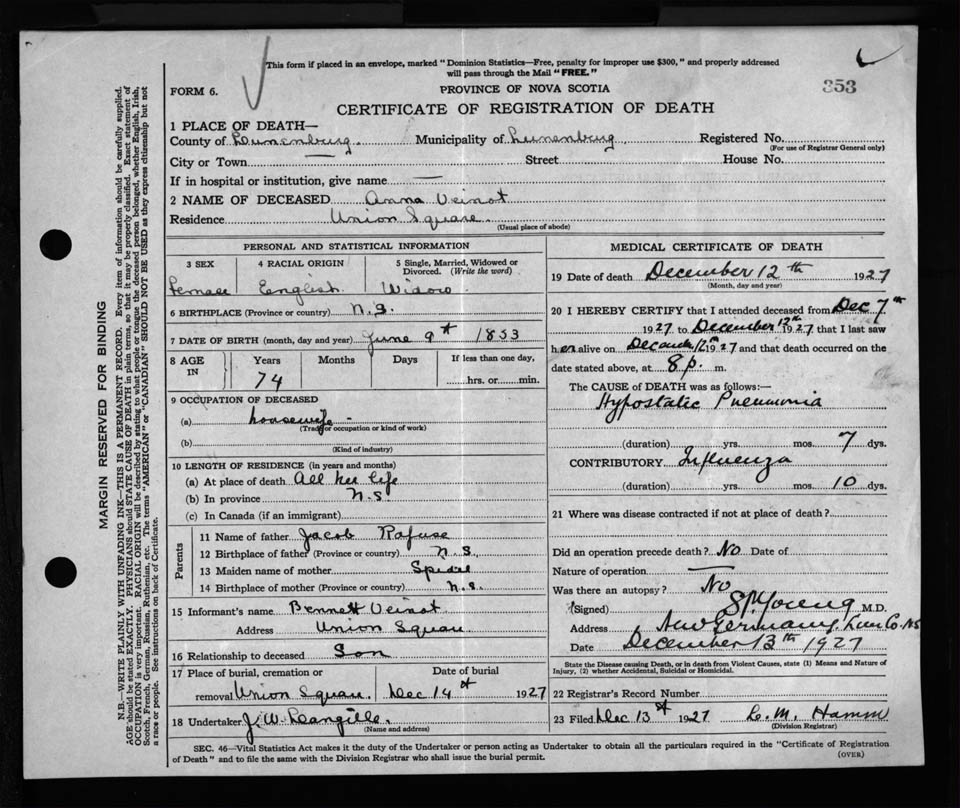 This form if placed in an envelope, marked "Dominion Statistics—Free, penalty for improper use $300," and properly addressed
will pass through the Mail "FREE."
FORM 6.
PROVINCE OF NOVA SCOTIA
353
CERTIFICATE OF REGISTRATION OF DEATH
1 PLACE OF DEATH—
County of Lunenburg Municipality of Lunenburg Registered No.
(For use of Registrar General only)
City or Town — Street House No.
If in hospital or institution, give name —
2 NAME OF DECEASED Anna Veinot
Residence Union Square
(Usual place of abode)
PERSONAL AND STATISTICAL INFORMATION
3 SEX 4 RACIAL ORIGIN 5 Single, Married, Widowed or
Divorced. (Write the word)
Female English Widow
6 BIRTHPLACE (Province or country) N.S.
7 DATE OF BIRTH (month, day and year) June 9th 1853
8 AGE IN Years Months Days If less than one day,
74 hrs. or min.
9 OCCUPATION OF DECEASED
(a) housewife
(Trade or occupation or kind of work)
(b)
(Kind of industry)
10 LENGTH OF RESIDENCE (in years and months)
(a) At place of death All her life
(b) In province N.S
(c) In Canada (if an immigrant)
Parents
11 Name of father Jacob Rafuse
12 Birthplace of father (Province or country) N.S.
13 Maiden name of mother
14 Birthplace of mother (Province or country) N.S.
15 Informant's name Bennett Veinot
Address Union Square
16 Relationship to deceased Son
17 Place of burial, cremation or Date of burial
removal Union Square Dec 14th 1927
18 Undertaker J. W.
(Name and address)
MEDICAL CERTIFICATE OF DEATH
19 Date of death December 12th 1927
(Month, day and year)
20 I HEREBY CERTIFY that I attended deceased from Dec 7th
1927 to December 12th 1927 that I last saw
her alive on December 12th 1927 and that death occurred on the
date stated above, at 8 p. m.
The CAUSE OF DEATH was as follows:—
Hypostatic Pneumonia
(duration) yrs. mos. 7 dys.
CONTRIBUTORY Influenza
(duration) yrs. mos. 10 dys.
21 Where was disease contracted if not at place of death?
Did an operation precede death? No Date of
Nature of operation —
Was there an autopsy? No
(Signed) Young M.D.
Address New Germany, Lun Co. NS
Date December 13th 1927
State the Disease causing Death, or in death from Violent Causes, state (1) Means and Nature of
Injury, (2) whether Accidental, Suicidal or Homicidal.
22 Registrar's Record Number
23 Filed Dec 13th 1927 L. M. Hamm
(Division Registrar)
SEC. 46—Vital Statistics Act makes it the duty of the Undertaker or person acting as Undertaker to obtain all the particulars required in the "Certificate of Registration
of Death" and to file the same with the Division Registrar who shall issue the burial permit.
(OVER)
MARGIN RESERVED FOR BINDING
N.B.—WRITE PLAINLY WITH UNFADING INK—THIS IS A PERMANENT RECORD. Every item of information should be carefully supplied.
AGE should be stated EXACTLY. PHYSICIANS should STATE CAUSE OF DEATH in plain terms, so that it may be properly classified. Exact statement of
OCCUPATION is very important. RACIAL ORIGIN will be described by stating to what people or tongue the deceased person belonged, whether English, Irish,
Scotch, French, German, Russian, Ruthenian, etc. The terms "AMERICAN" or "CANADIAN" SHOULD NOT BE USED as they express citizenship but not
a race or people. See instructions on back of Certificate.